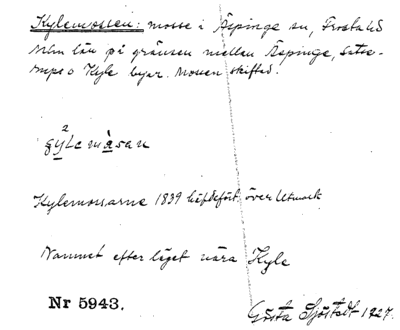 Kylemossen: mosse i Äspinge sn, Frosta hd
Mln län på gränsen mellan Äspinge, Satse-
rups o Kyle byar. Mossen skiftad.
Kylemossarne 1839 häfdefört över Utmark
Namnet efter läget nära Kyle
Nr 5943.
Gösta Sjöstedt 1927.